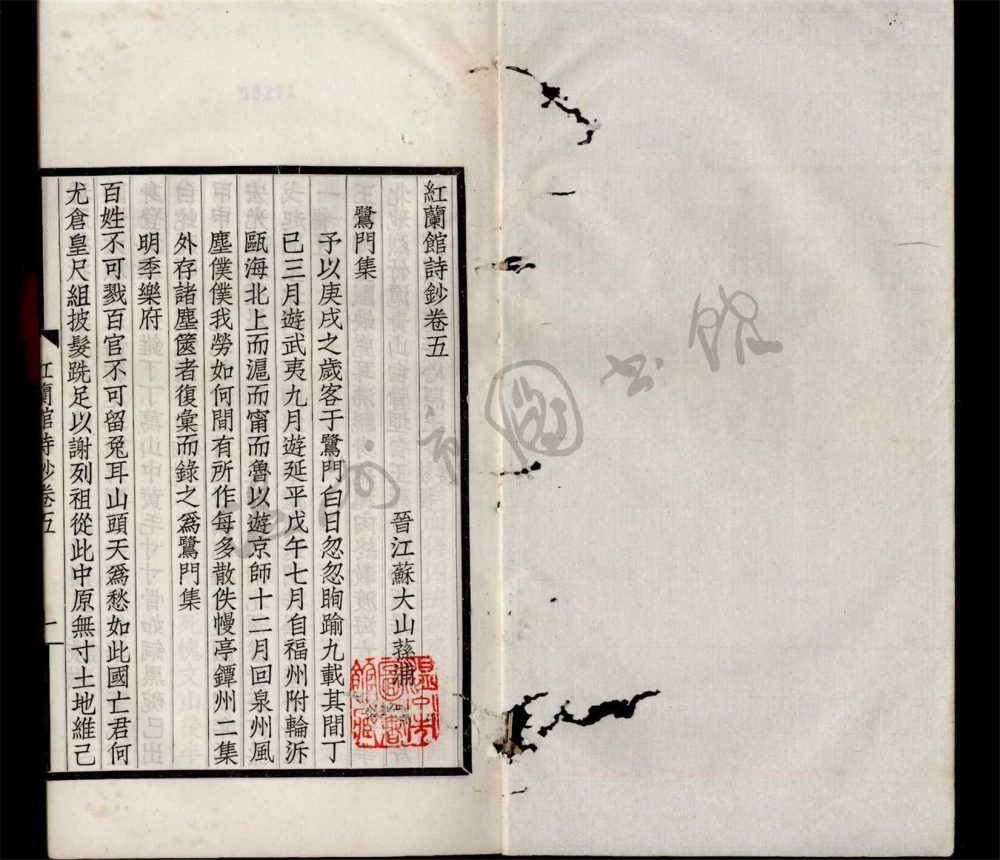 紅蘭館詩鈔卷五
晉江蘇大山蓀浦
鷺門集
予以庚戌之歲客于鷺門白日忽忽眴踰九載其間丁
巳三月遊武夷九月遊延平戊午七月自福州附輪泝
甌海北上而滬而甯而魯以遊京師十二月回泉州風
塵僕僕我勞如何間有所作每多散佚幔亭鐔州二集
外存諸塵篋者復彙而錄之爲鷺門集
明季樂府
百姓不可戮百官不可留兔耳山頭天爲愁如此國亡君何
尤倉皇尺組披髮跣足以謝列祖從此中原無寸土地維己
紅蘭館詩鈔卷五
一
溫州市
圖書
館藏
市圖书館